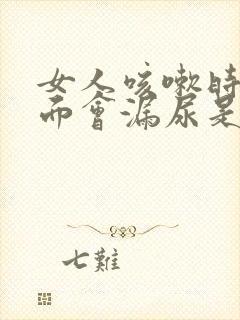 女人咳嗽時
而會漏尿是
七難